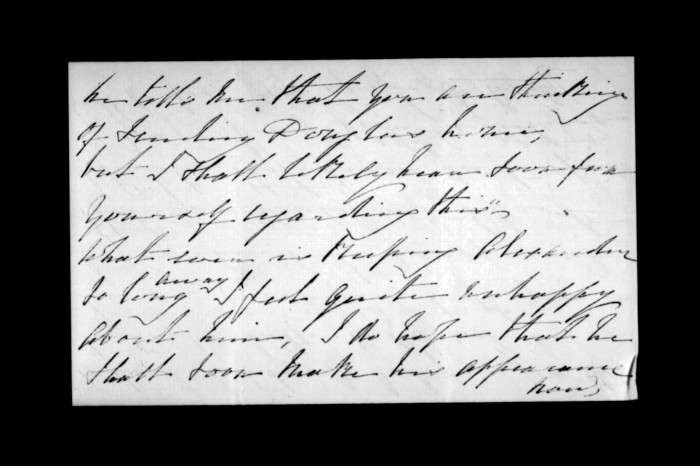 he tells me that you are thinking
of sending Douglas home,
but I shall likely hear soon from
yourself regarding this.
What ever is keeping Alexander
so long away I feel quite unhappy
about him, I do hope that he
shall soon make his appearance
now,